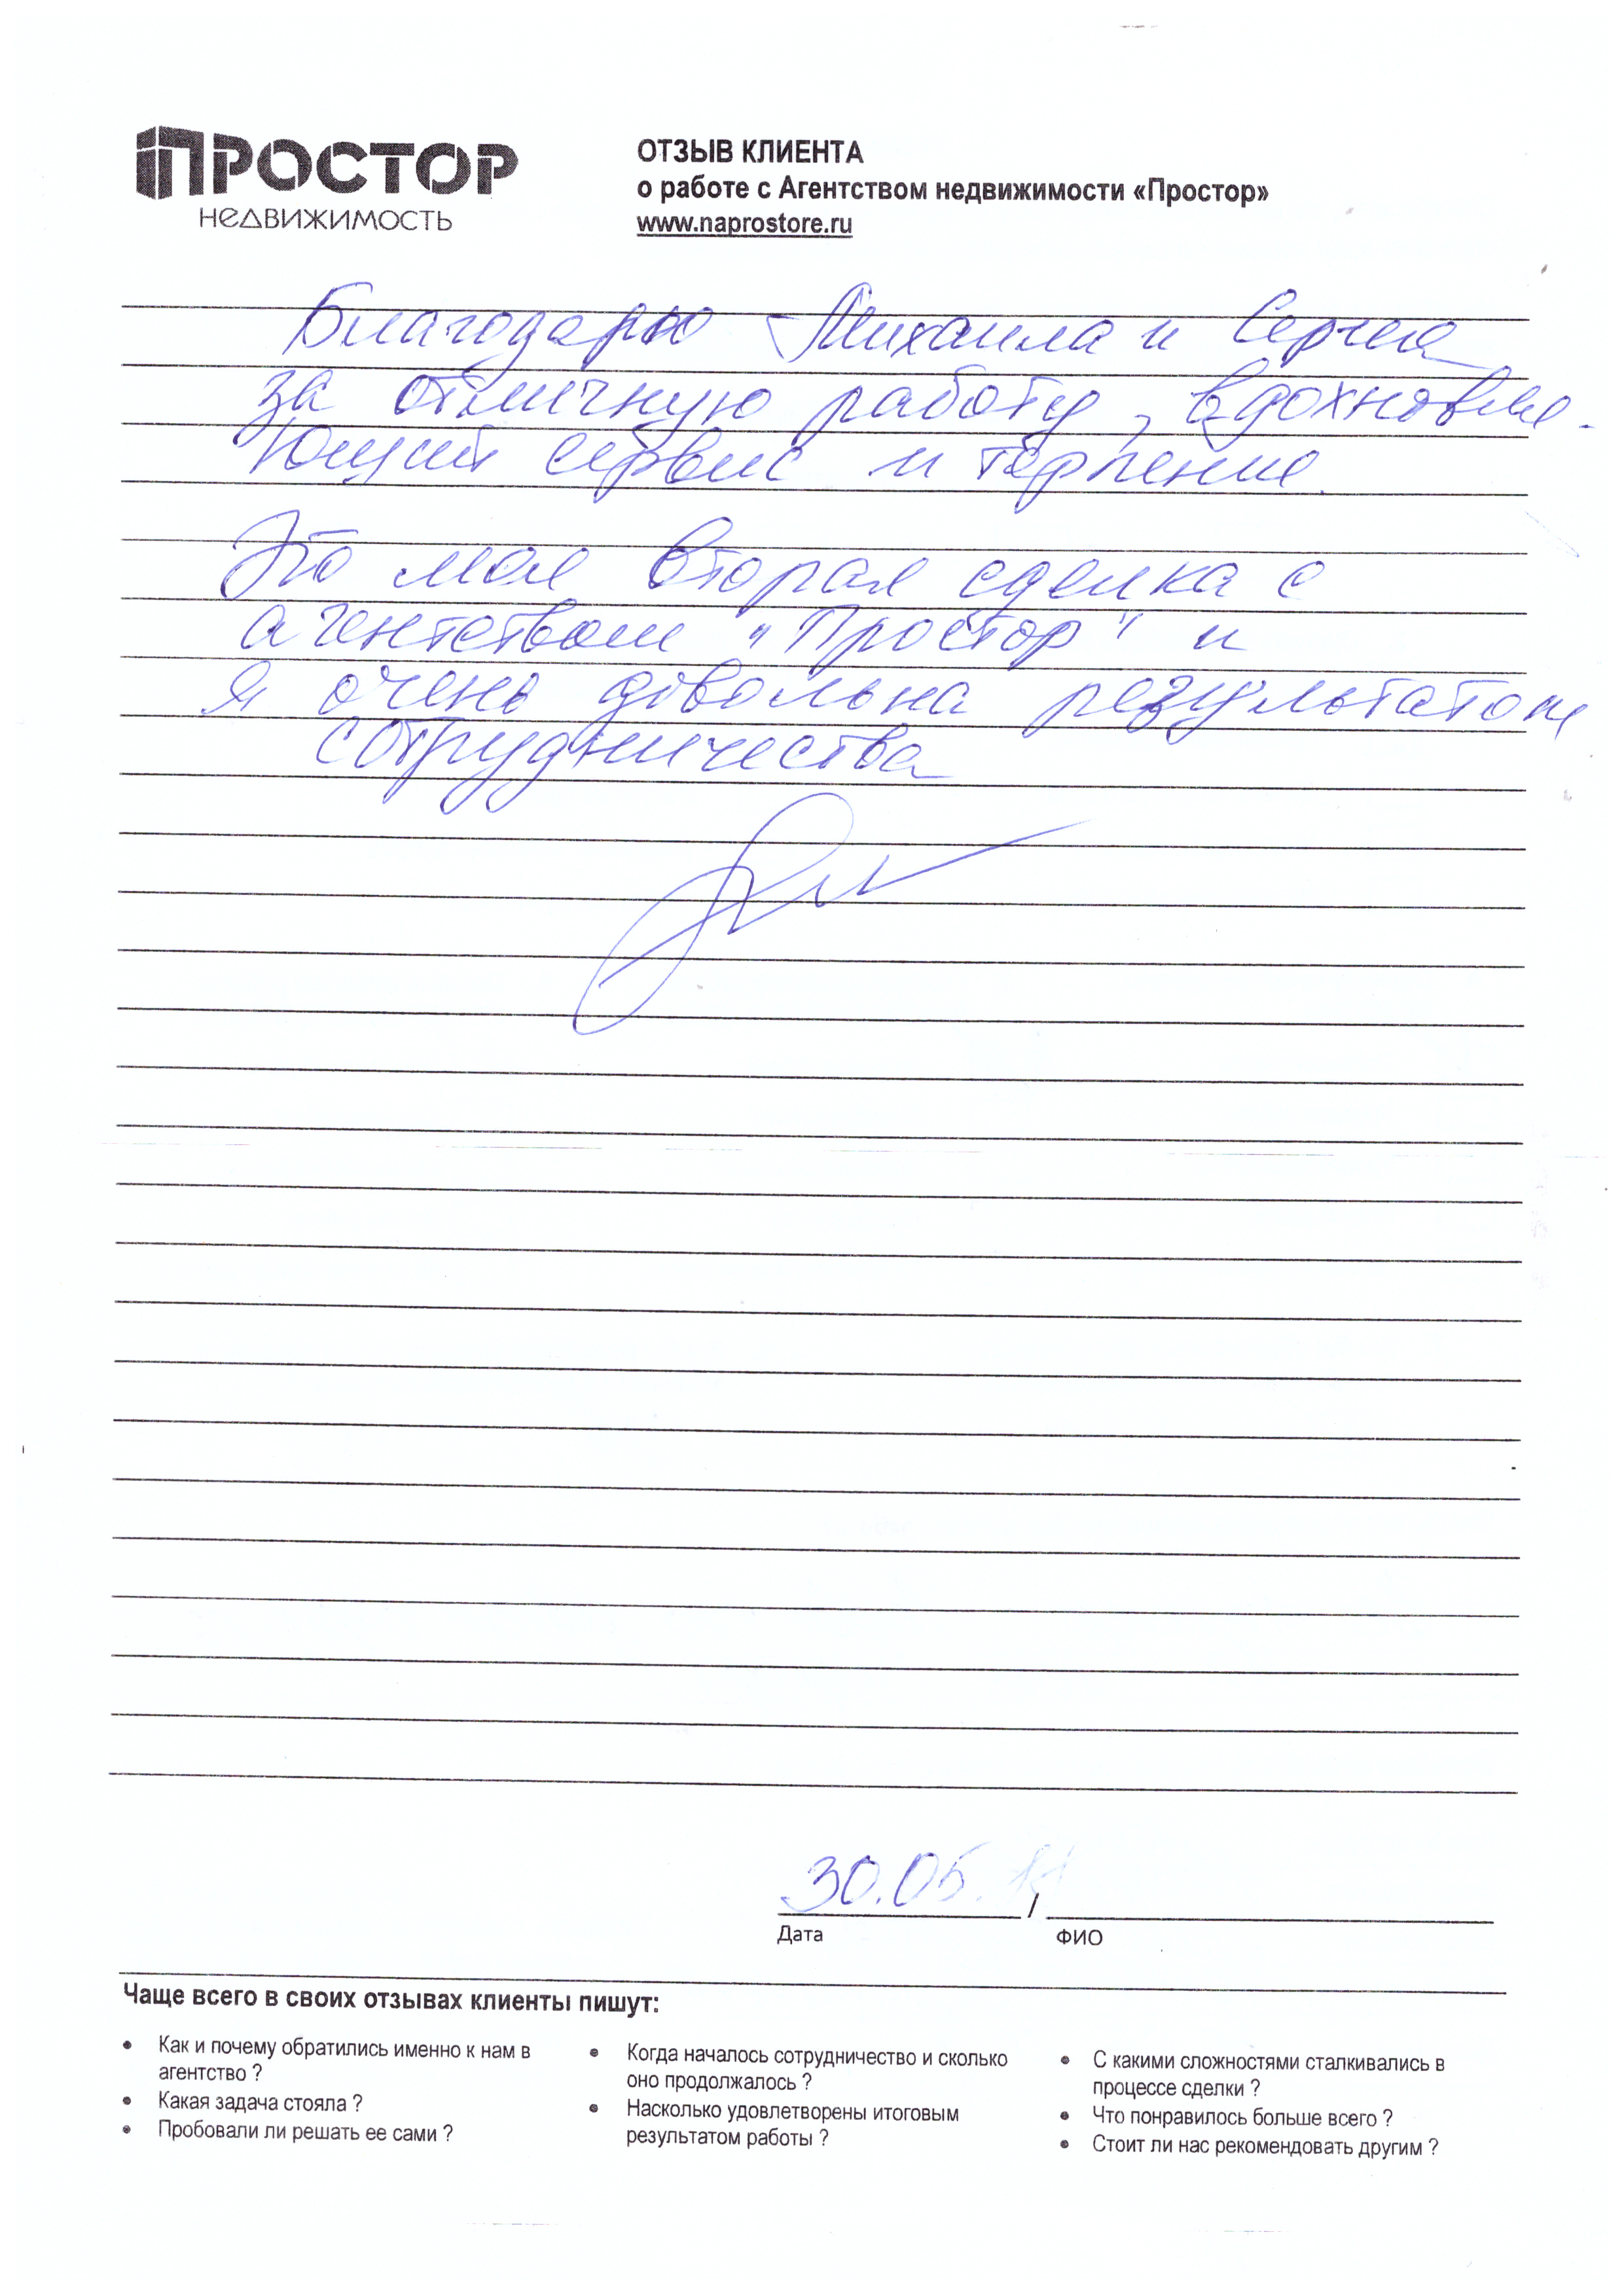 ПРОСТОР
НЕДВИЖИМОСТЬ
ОТЗЫВ КЛИЕНТА
о работе с Агентством недвижимости «Простор»
www.naprostore.ru
Благодарю Михаила и Сергея
за отличную работу, вдохновля-
ющий сервис и терпение.
Это моя вторая сделка с
агентством "Простор" и
я очень довольна результатом
сотрудничества
30.05.
/
Дата
ФИО
Чаще всего в своих отзывах клиенты пишут:
• Как и почему обратились именно к нам в
агентство ?
• Какая задача стояла ?
• Пробовали ли решать ее сами ?
• Когда началось сотрудничество и сколько
оно продолжалось ?
• Насколько удовлетворены итоговым
результатом работы ?
• С какими сложностями сталкивались в
процессе сделки ?
• Что понравилось больше всего ?
• Стоит ли нас рекомендовать другим ?